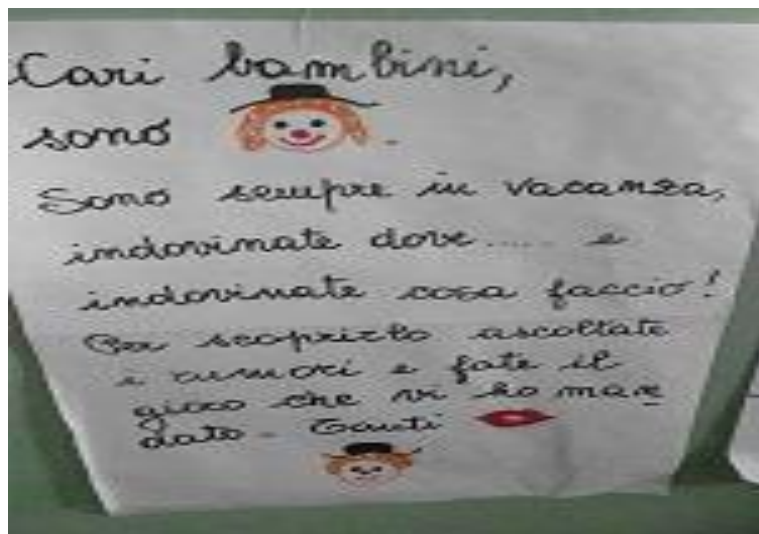 Cari bambini,
sono .
Sono sempre in vacanza,
indovinate dove ..... e
indovinate cosa faccio!
Per scoprirlo ascoltate
i rumori e fate il
gioco che vi ho man
dato - Tanti